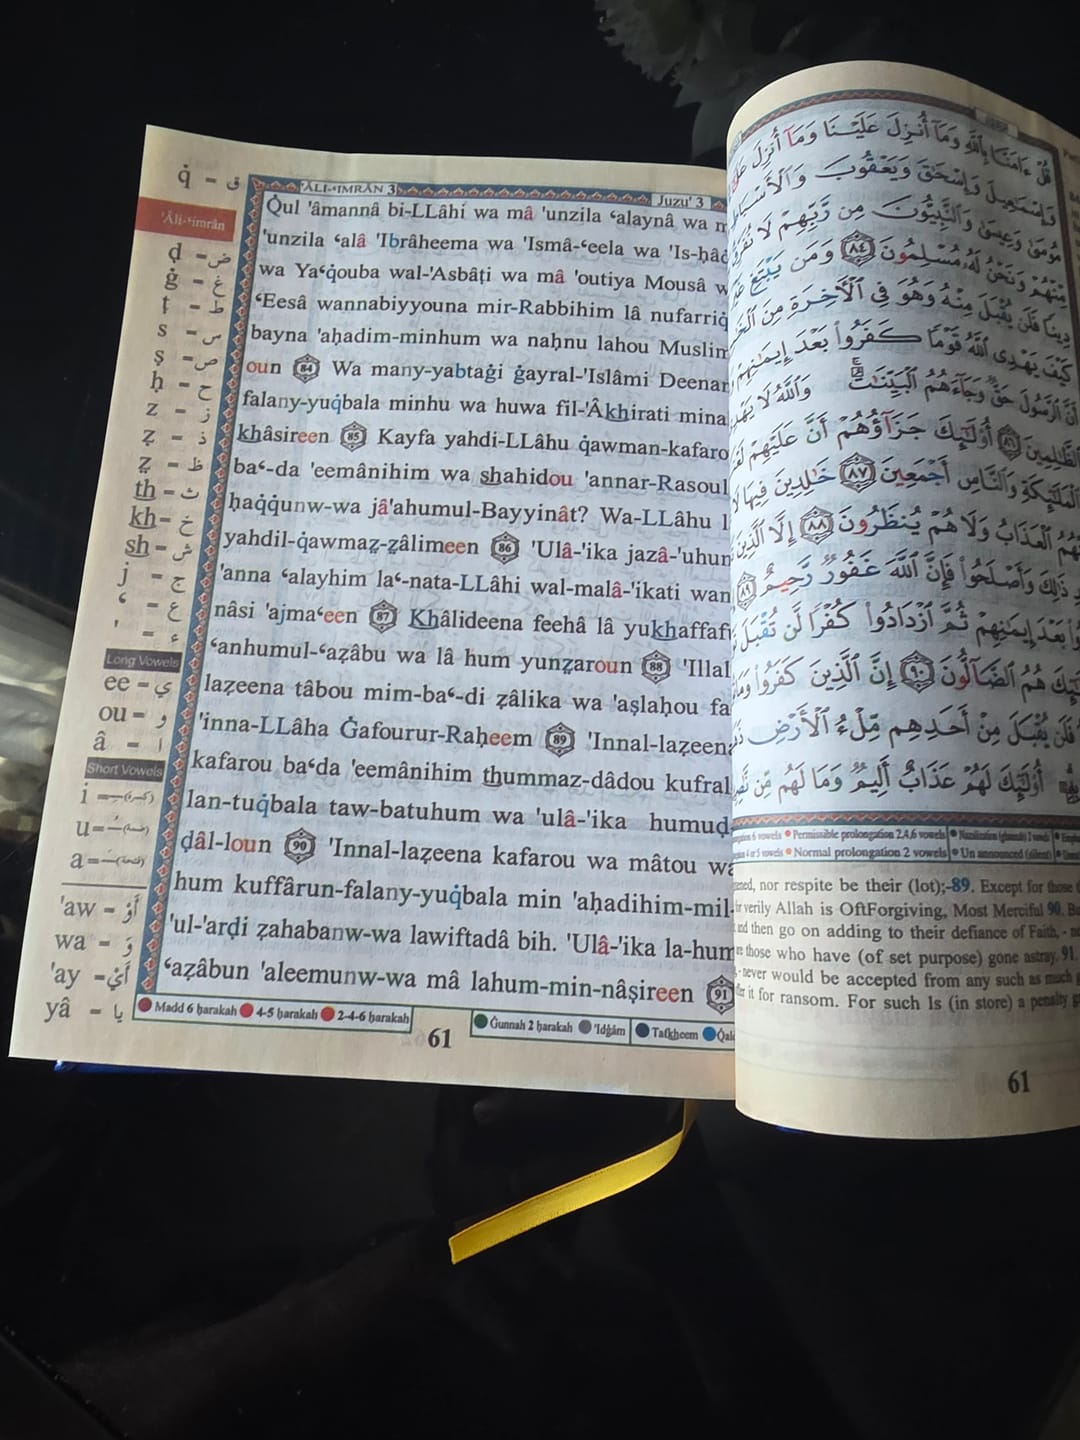 q̇ - ق
'Âli-'imrân
ḍ - ض
ġ - غ
ṭ - ط
s - س
ṣ - ص
ḥ - ح
z - ز
ẓ - ذ
ẓ - ظ
th - ث
kh - خ
sh - ش
j - ج
‘ - ع
' - ء
Long Vowels
ee - ي
ou - و
â - ا
Short Vowels
i
u
a
'aw - أَوْ
wa - وَ
'ay - أَيْ
yâ - يا
'ÂLI-‘IMRÂN 3 Juzu' 3
Q̇ul 'âmannâ bi-LLâhi wa mâ 'unzila ‘alaynâ wa
'unzila ‘alâ 'Ibrâheema wa 'Ismâ-‘eela wa
wa Ya‘q̇ouba wal-'Asbâṭi wa mâ 'outiya Mousâ
‘Eesâ wannabiyyouna mir-Rabbihim lâ nufarriq̇
bayna 'aḥadim-minhum wa naḥnu lahou Muslim
oun 84 Wa many-yabtaġi ġayral-'Islâmi
falany-yuq̇bala minhu wa huwa fil-'Âkhirati mina
khâsireen 85 Kayfa yahdi-LLâhu q̇awman-kafaro
ba‘-da 'eemânihim wa shahidou 'annar-Rasoul
ḥaq̇q̇unw-wa jâ'ahumul-Bayyinât? Wa-LLâhu
yahdil-q̇awmaẓ-ẓâlimeen 86 'Ulâ-'ika jazâ-'uhum
'anna ‘alayhim la‘-nata-LLâhi wal-malâ-'ikati wan
nâsi 'ajma‘een 87 Khâlideena feehâ lâ yukhaffaf
‘anhumul-‘aẓâbu wa lâ hum yunẓaroun 88 'Illal
laẓeena tâbou mim-ba‘-di ẓâlika wa 'aṣlaḥou fa
'inna-LLâha Ġafourur-Raḥeem 89 'Innal-laẓeena
kafarou ba‘da 'eemânihim thummaz-dâdou kufral
lan-tuq̇bala taw-batuhum wa 'ulâ-'ika humuḍ-
ḍâl-loun 90 'Innal-laẓeena kafarou wa mâtou wa
hum kuffârun-falany-yuq̇bala min 'aḥadihim-mil-
'ul-'arḍi ẓahabanw-wa lawiftadâ bih. 'Ulâ-'ika la-hum
‘aẓâbun 'aleemunw-wa mâ lahum-min-nâṣireen 91
Madd 6 ḥarakah 4-5 ḥarakah 2-4-6 ḥarakah
Ġunnah 2 ḥarakah 'Idġâm Tafkheem
61
قُلْ ءَامَنَّا بِاللَّهِ وَمَا أُنزِلَ عَلَيْنَا وَمَا أُنزِلَ
وَإِسْمَاعِيلَ وَإِسْحَاقَ وَيَعْقُوبَ وَالْأَسْبَاطِ
مُوسَى وَعِيسَى وَالنَّبِيُّونَ مِن رَّبِّهِمْ لَا نُفَرِّقُ
مِّنْهُمْ وَنَحْنُ لَهُ مُسْلِمُونَ ٨٤ وَمَن يَبْتَغِ
دِينًا فَلَن يُقْبَلَ مِنْهُ وَهُوَ فِي الْآخِرَةِ مِنَ
كَيْفَ يَهْدِي اللَّهُ قَوْمًا كَفَرُوا بَعْدَ إِيمَانِهِمْ
أَنَّ الرَّسُولَ حَقٌّ وَجَاءَهُمُ الْبَيِّنَاتُ وَاللَّهُ لَا
الظَّالِمِينَ ٨٦ أُولَٰئِكَ جَزَاؤُهُمْ أَنَّ عَلَيْهِمْ
الْمَلَائِكَةِ وَالنَّاسِ أَجْمَعِينَ ٨٧ خَالِدِينَ فِيهَا لَا
الْعَذَابُ وَلَا هُمْ يُنظَرُونَ ٨٨ إِلَّا الَّذِينَ
ذَٰلِكَ وَأَصْلَحُوا فَإِنَّ اللَّهَ غَفُورٌ رَّحِيمٌ ٨٩
بَعْدَ إِيمَانِهِمْ ثُمَّ ازْدَادُوا كُفْرًا لَّن تُقْبَلَ
هُمُ الضَّالُّونَ ٩٠ إِنَّ الَّذِينَ كَفَرُوا
فَلَن يُقْبَلَ مِنْ أَحَدِهِم مِّلْءُ الْأَرْضِ
أُولَٰئِكَ لَهُمْ عَذَابٌ أَلِيمٌ وَمَا لَهُم مِّن
6 vowels Permissible prolongation 2,4,6 vowels Nazalization (ghunnah) 2 vowels
4 or 5 vowels Normal prolongation 2 vowels Un announced (silent)
nor respite be their (lot);-89. Except for those
verily Allah is OftForgiving, Most Merciful 90.
and then go on adding to their defiance of Faith, -
those who have (of set purpose) gone astray. 91.
- never would be accepted from any such as much
it for ransom. For such Is (in store) a penalty
61